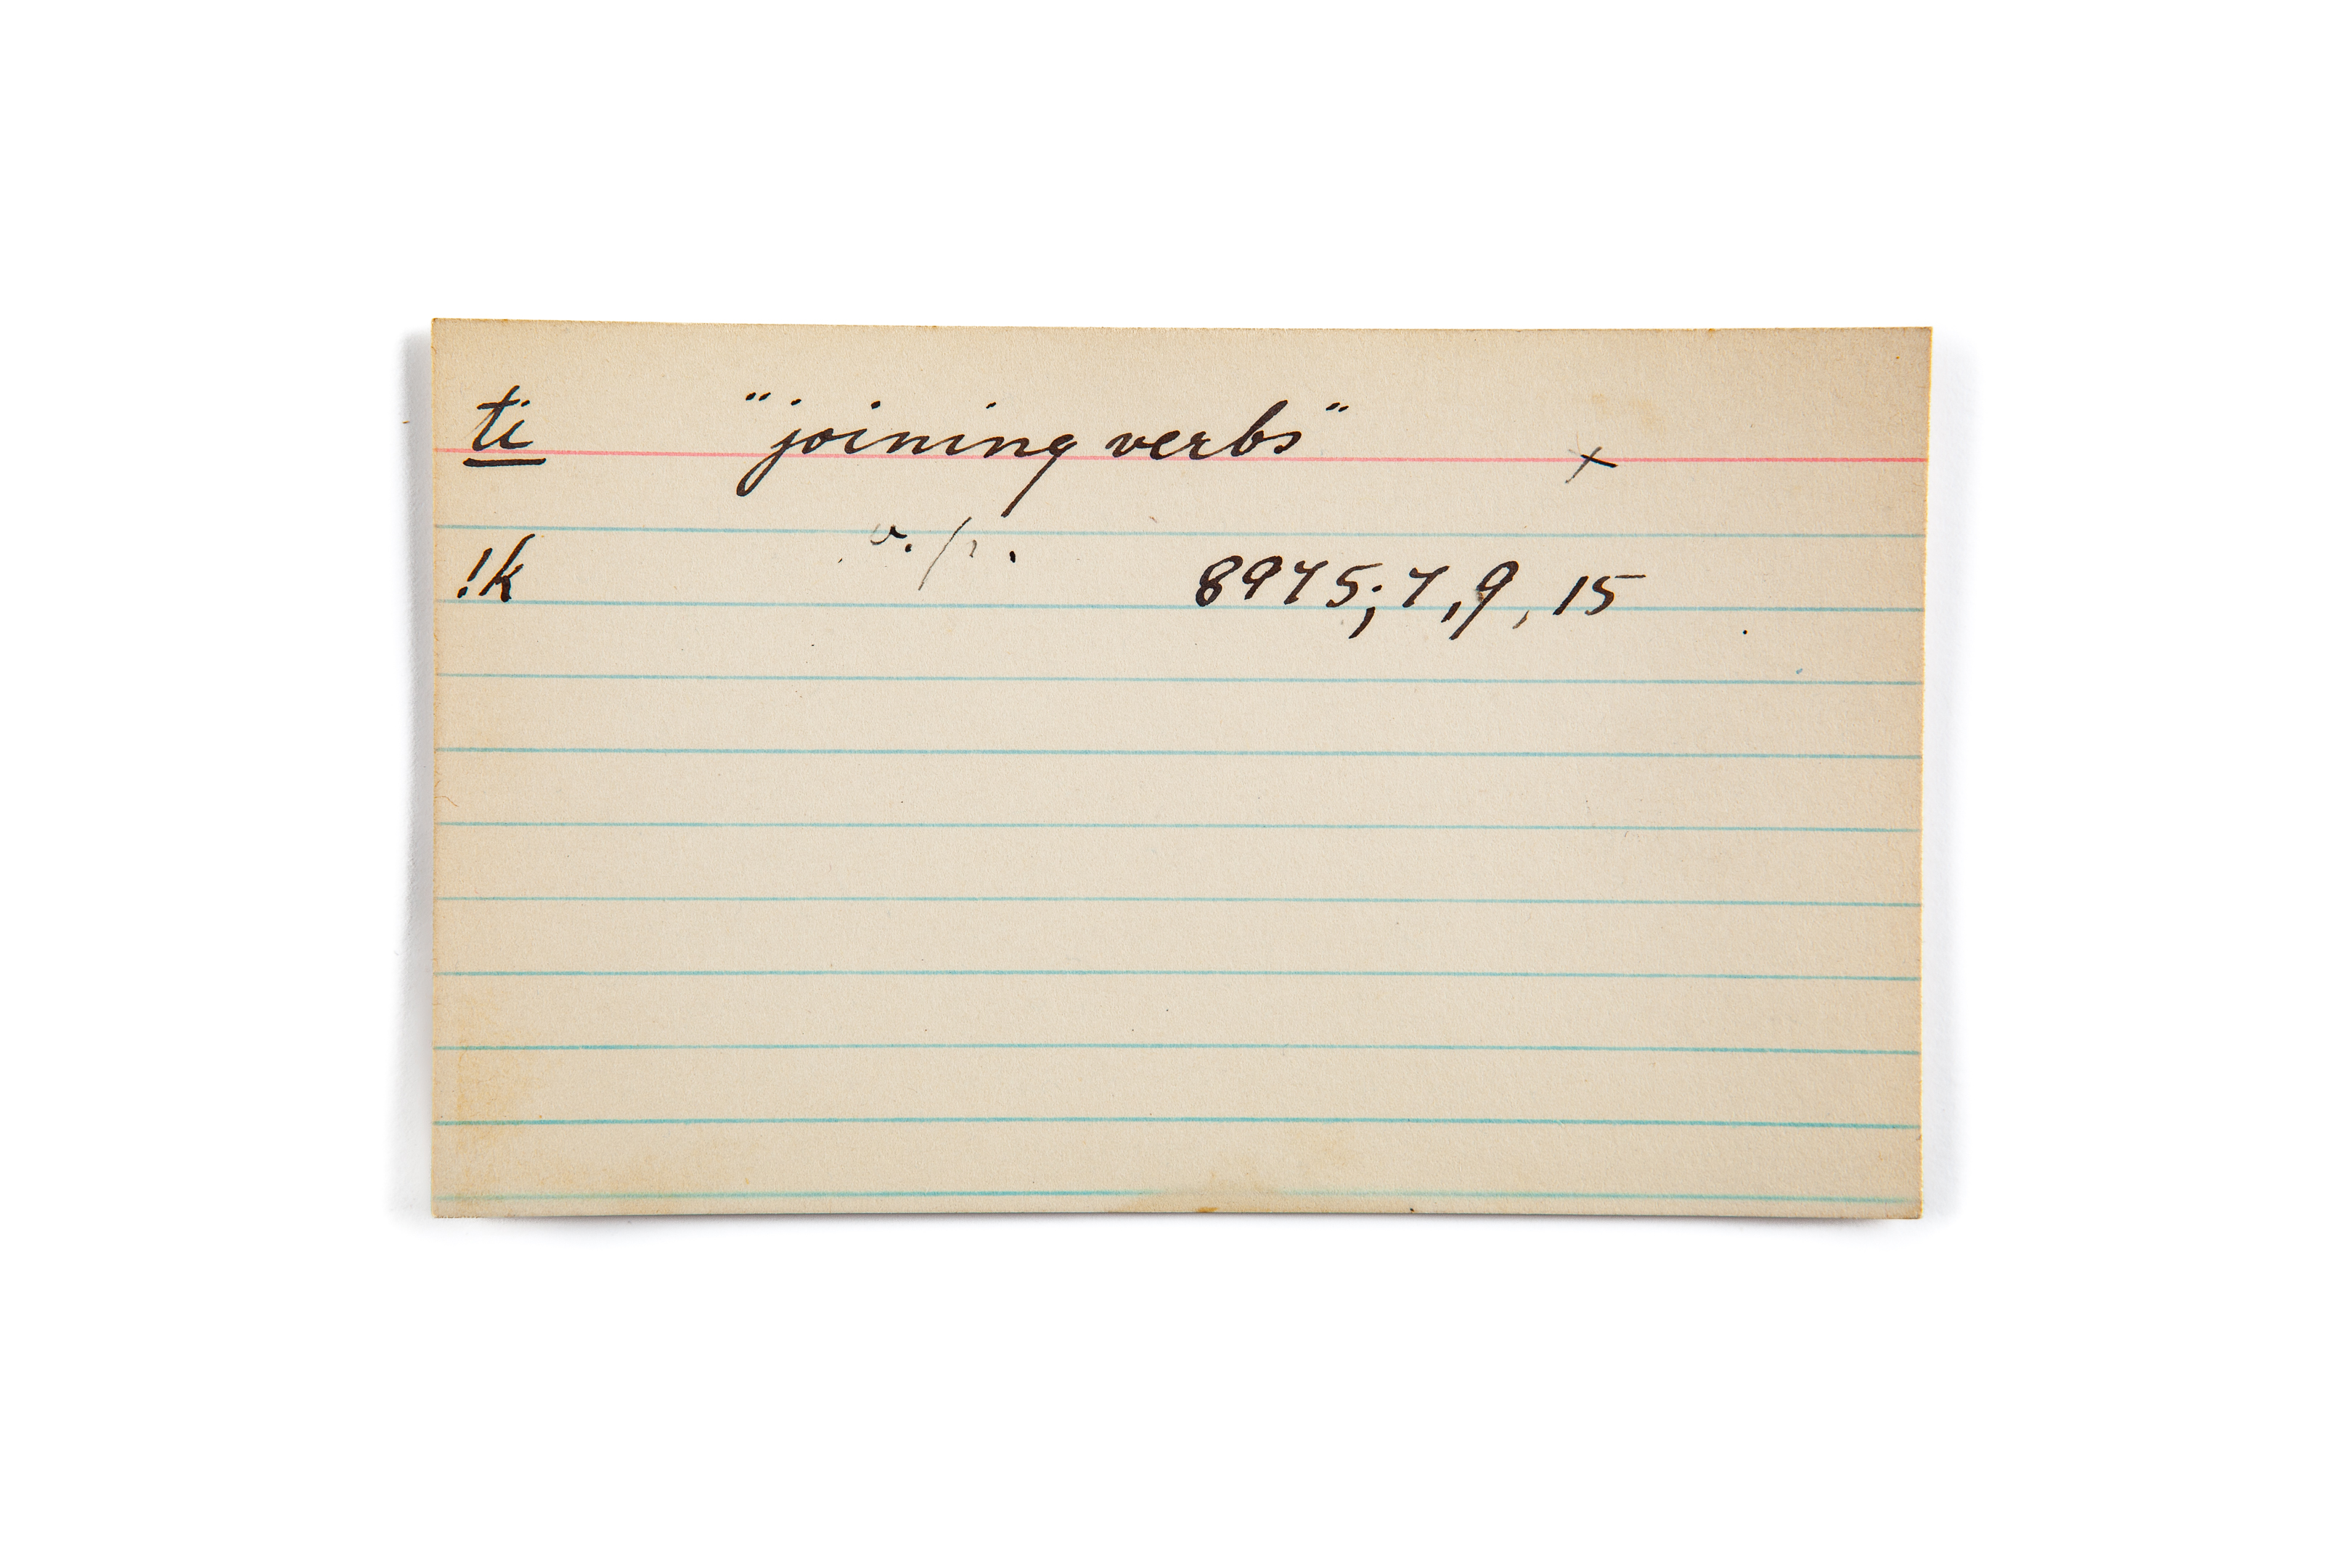 ti "joining verbs" x
v. p.
!k 8975; 7, 9, 15